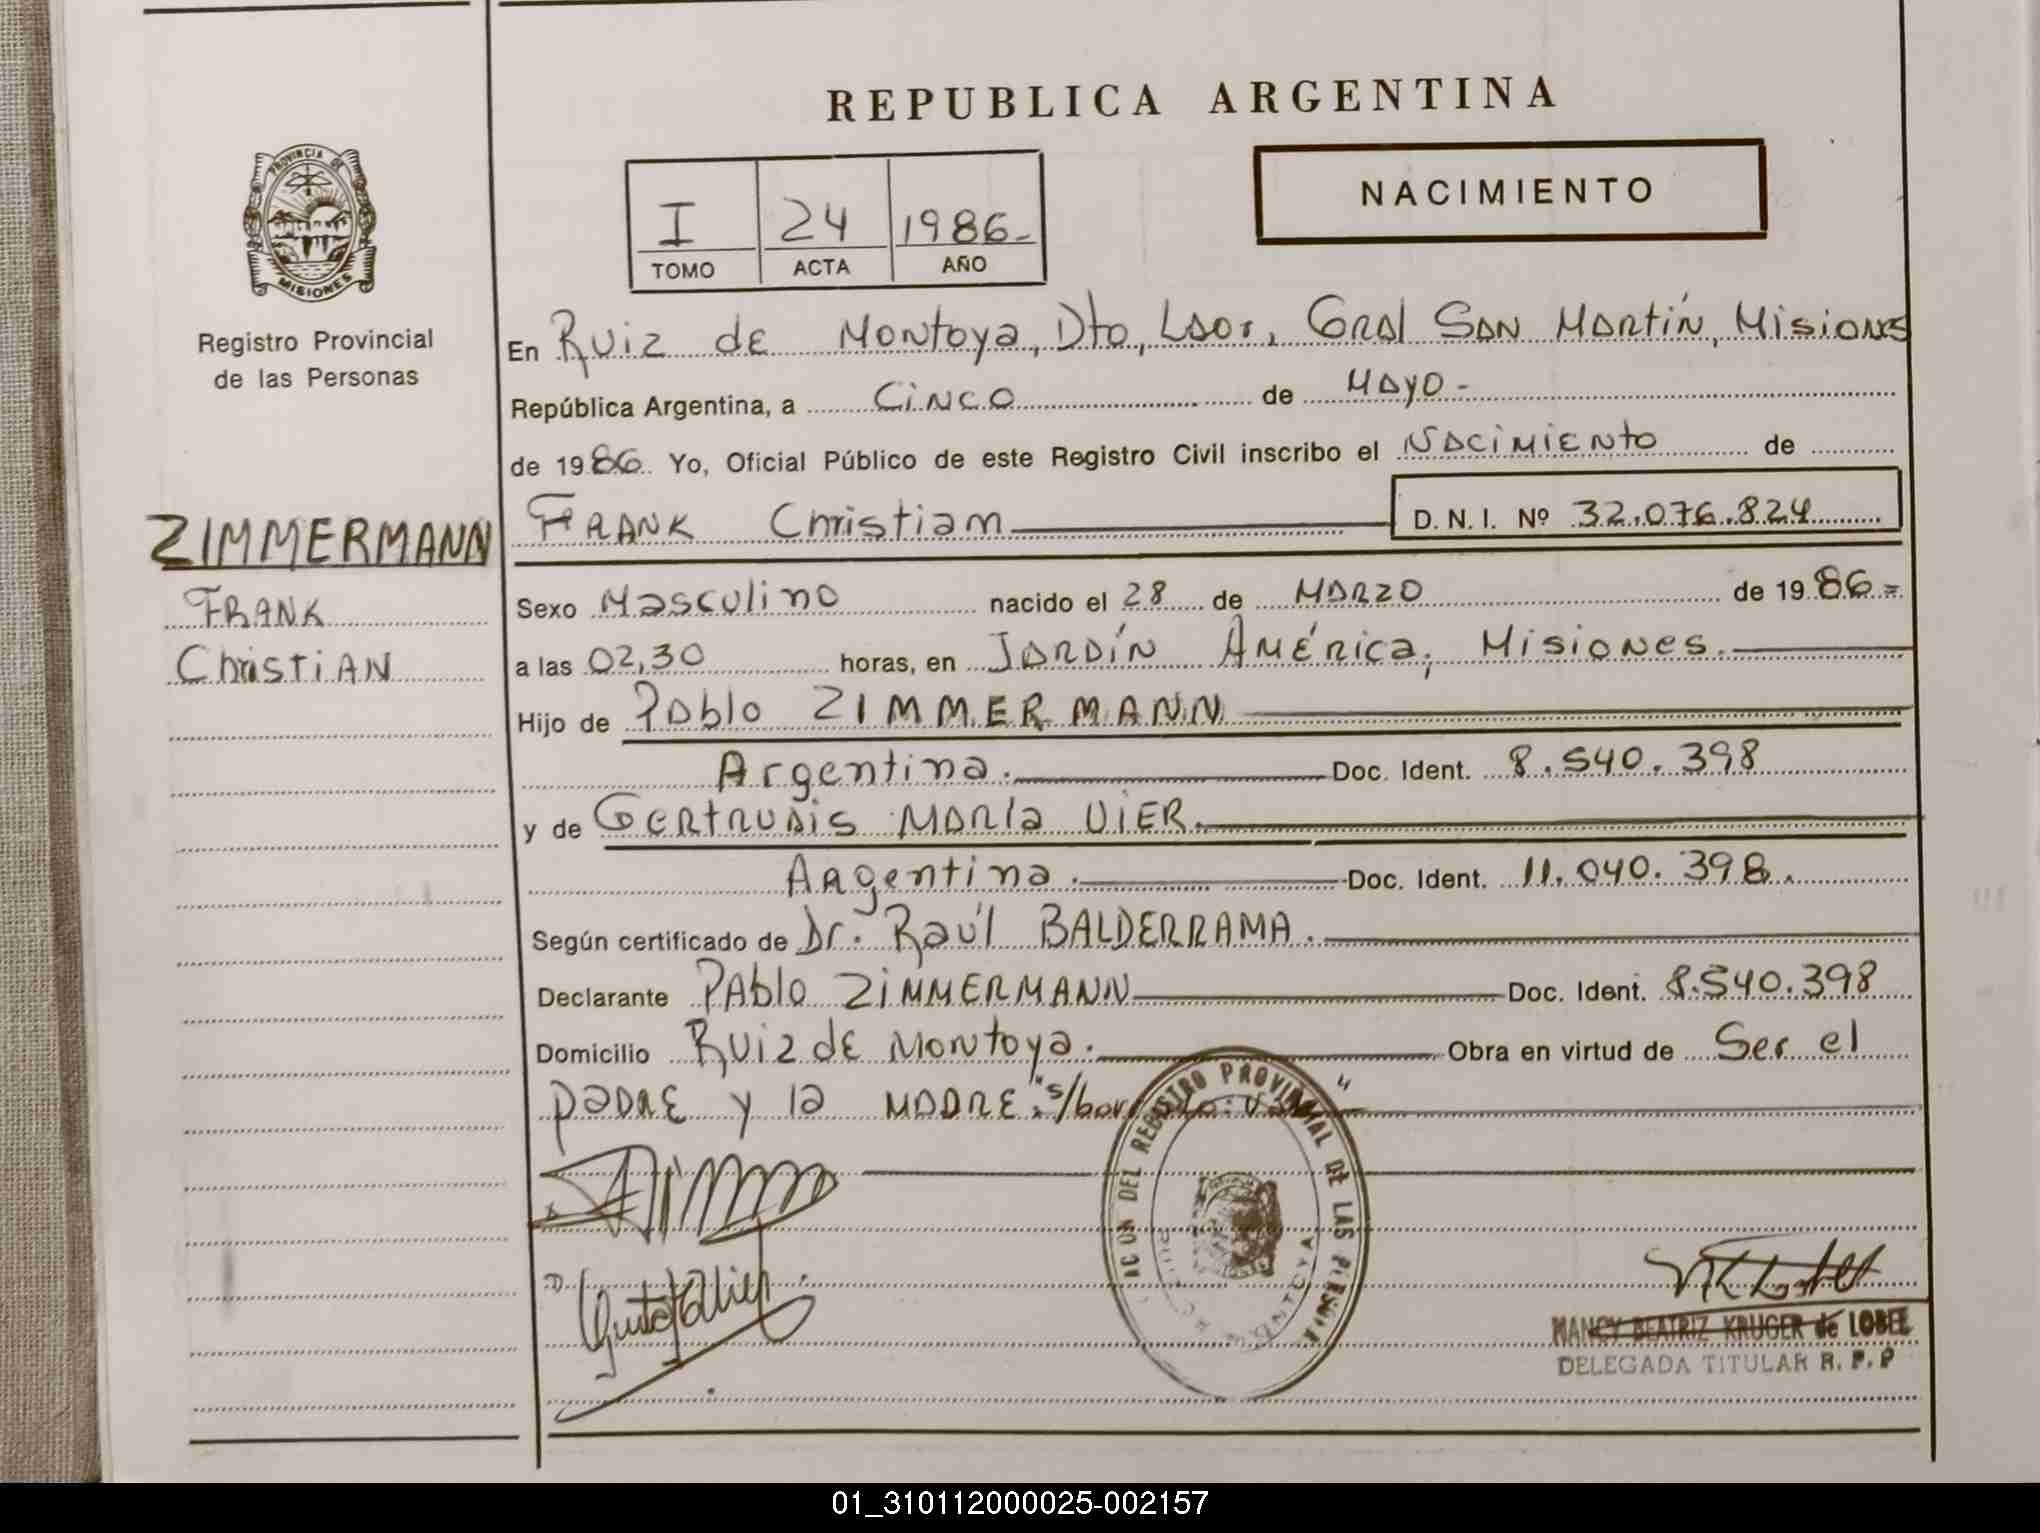 REPUBLICA ARGENTINA
PROVINCIA DE
MISIONES
Registro Provincial
de las Personas
I 24 1986-
TOMO ACTA AÑO
NACIMIENTO
En Ruiz de Montoya, Dto, Ldor, Gral San Martín, Misiones
República Argentina, a Cinco de Mayo-
de 1986 Yo, Oficial Público de este Registro Civil inscribo el Nacimiento de
ZIMMERMANN
FRANK
ChristiAN
FRANK Christian D. N. I. Nº 32.076.824
Sexo Masculino nacido el 28 de Marzo de 1986=
a las 02,30 horas, en Jardín América, Misiones.
Hijo de Pablo ZIMMERMANN
Argentina. Doc. Ident. 8.540.398
y de Gertrudis María VIER.
Argentina. Doc. Ident. 11.040.398.
Según certificado de Dr. Raúl BALDERRAMA.
Declarante PAblo ZiMMERMANN Doc. Ident. 8.540.398
Domicilio Ruiz de Montoya. Obra en virtud de Ser el
padre y la madre. "s/
DEL REGISTRO PROVINCIAL DE LAS
NANCY BEATRIZ KRUGER de LOBEE
DELEGADA TITULAR R. P. P
01_310112000025-002157